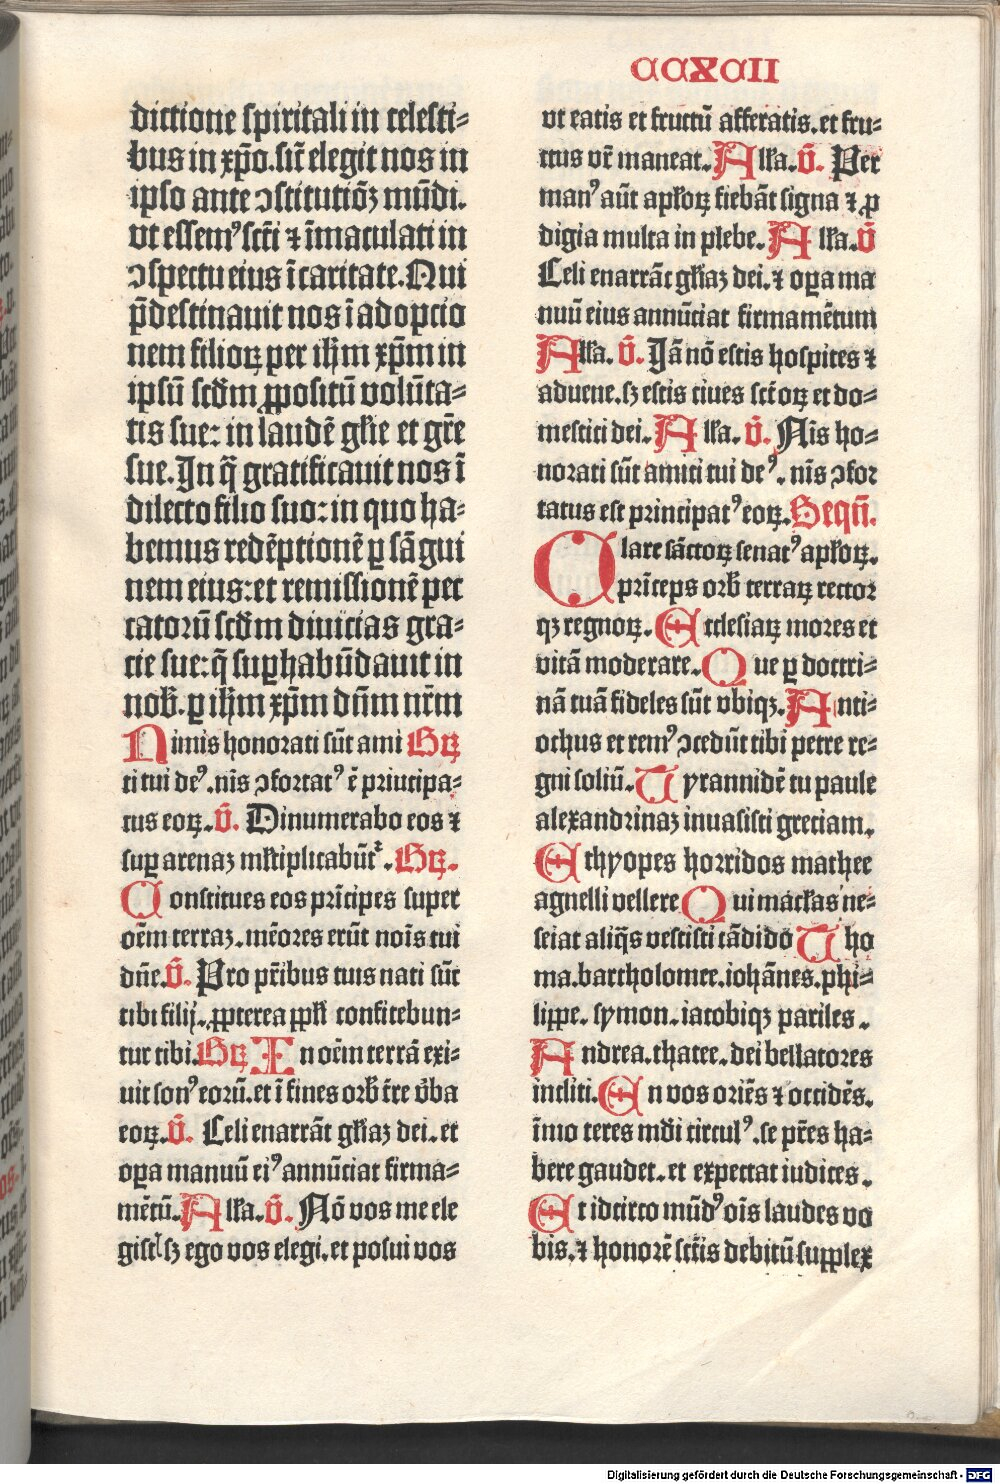 CCXCII
dictione spiritali in celesti⸗
bus in xp̄o. sic̄ elegit nos in
ipso ante ↄstitutiōꝫ mūdi.
vt essemꝰ sc̄ti ⁊ īmaculati in
ↄspectu eius ī caritate. Qui
p̄destinauit nos ī adopcio
nem filioꝝ per ih̄m xp̄m in
ipsū scd̄m ꝓpositū volūta⸗
tis sue: in laudē gl̄ie et gr̄e
sue. In q̄ gratificauit nos ī
dilecto filio suo: in quo ha⸗
bemus redēptionē ꝑ sāgui
nem eius: et remissionē pec
catorū scd̄m diuicias gra⸗
cie sue: q̄ suꝑhabūdauit in
nob̄. ꝑ ih̄m xp̄m dn̄m nr̄m
Nimis honorati sūt ami Gꝝ
ci tui deꝰ. nīs ↄfortatꝰ ē principa⸗
tus eoꝝ. v̄. Dinumerabo eos ⁊
suꝑ arenaꝫ ml̄tiplicabūt᷑. Gꝝ.
Constitues eos prīcipes super
oēm terraꝫ. mēores erūt noīs tui
dn̄e. v̄. Pro pr̄ibus tuis nati sūt
tibi filij. ꝓpterea ppl̄i confitebun⸗
tur tibi. Gꝝ In oēm terrā exi⸗
uit sonꝰ eorū. et ī fines orb̄ tr̄e v̄ba
eoꝝ. v̄. Celi enarrāt gl̄iaꝫ dei. et
oꝑa manuū eiꝰ annūciat firma⸗
mētū. All̄a. v̄. Nō vos me ele
gist̄ sꝫ ego vos elegi. et posui vos
vt eatis et fructū afferatis. et fru⸗
ctus vr̄ maneat. All̄a. v̄. Per
manꝰ aūt apl̄oꝝ fiebāt signa ⁊ ꝓ
digia multa in plebe. All̄a. v̄
Celi enarrāt gl̄iaꝫ dei. ⁊ oꝑa ma
nuū eius annūciat firmamētum
All̄a. v̄. Iā nō estis hospites ⁊
aduene. sꝫ estis ciues sc̄toꝝ et do⸗
mestici dei. All̄a. v̄. Nīs ho⸗
norati sūt amici tui deꝰ. nīs ↄfor
tatus est principatꝰ eoꝝ. Seqū.
Clare sāctoꝝ senatꝰ apl̄oꝝ.
prīceps orb̄ terraꝝ rector
qꝫ regnoꝝ. Ecclesiaꝝ mores et
vitā moderare. Que ꝑ doctri⸗
nā tuā fideles sūt vbiqꝫ. Anti⸗
ochus et remꝰ ↄcedūt tibi petre re⸗
gni soliū. Tyrannidē tu paule
alexandrinaꝫ inuasisti greciam.
Ethyopes horridos mathee
agnelli vellere Qui macl̄as ne⸗
sciat aliq̄s vestisti cādido Tho
ma. bartholomee. iohānes. phi⸗
lippe. symon. iacobiqꝫ pariles.
Andrea. thatee. dei bellatores
incliti. En vos oriēs ⁊ occidēs.
īmo teres mūdi circulꝰ. se pr̄es ha⸗
bere gaudet. et expectat iudices.
Et idcirco mūdꝰ oīs laudes vo
bis. ⁊ honorē sc̄tis debitū supplex
Digitalisierung gefördert durch die Deutsche Forschungsgemeinschaft - DFG